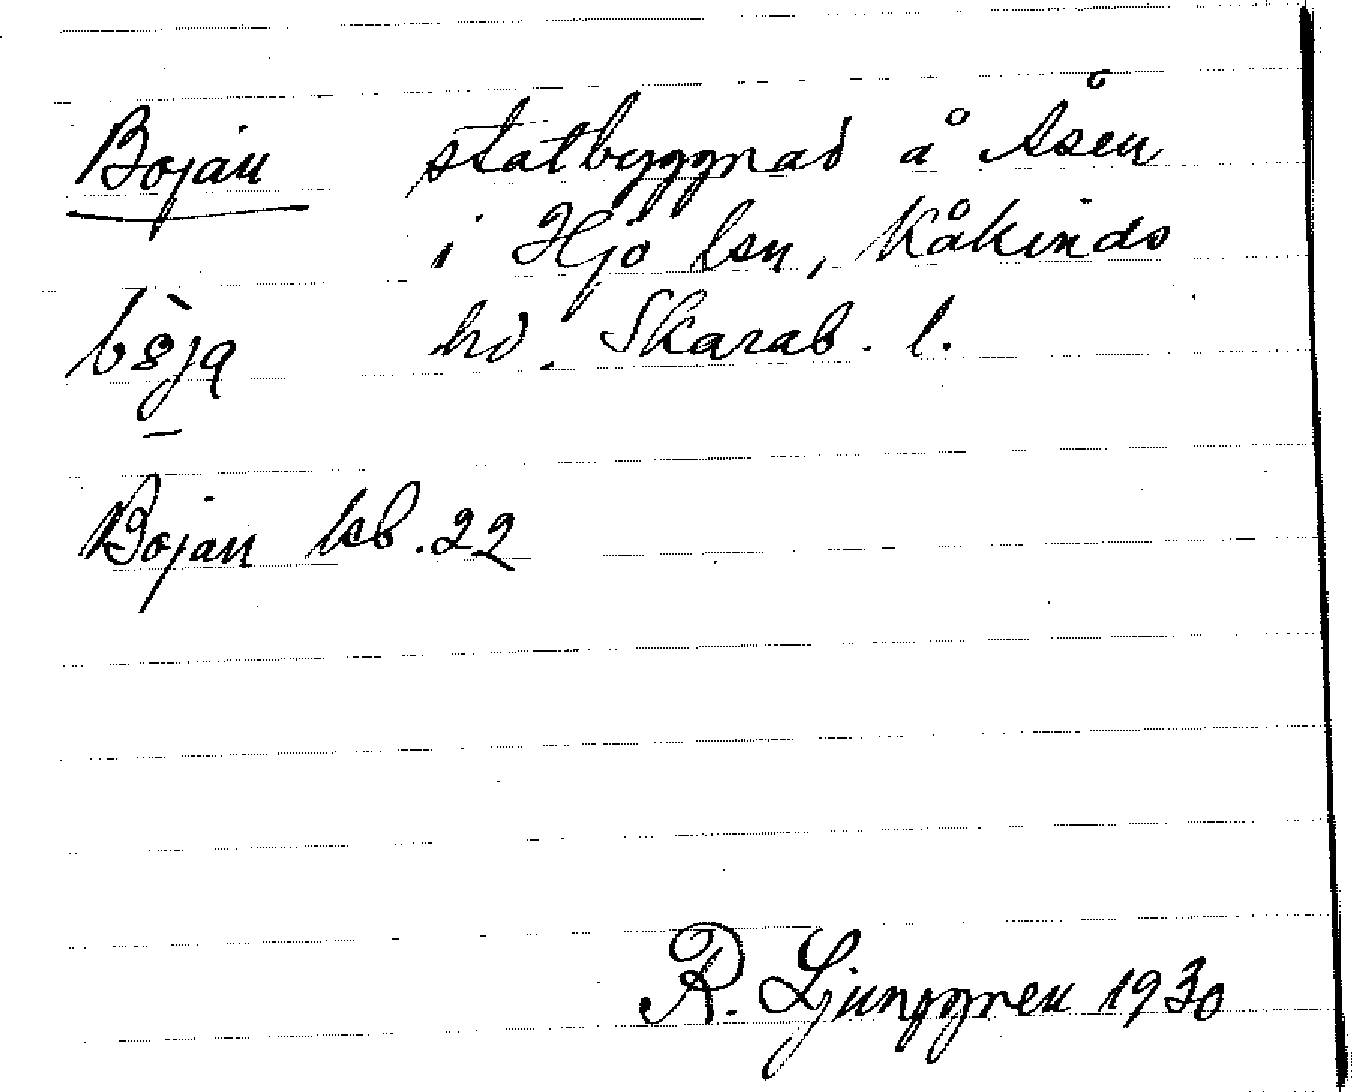 Bojan statbyggnad å Åsen
i Hjo lsn, Kåkinds
hd. Skarab. l.
Bojan kb. 22
R. Ljunggren 1930